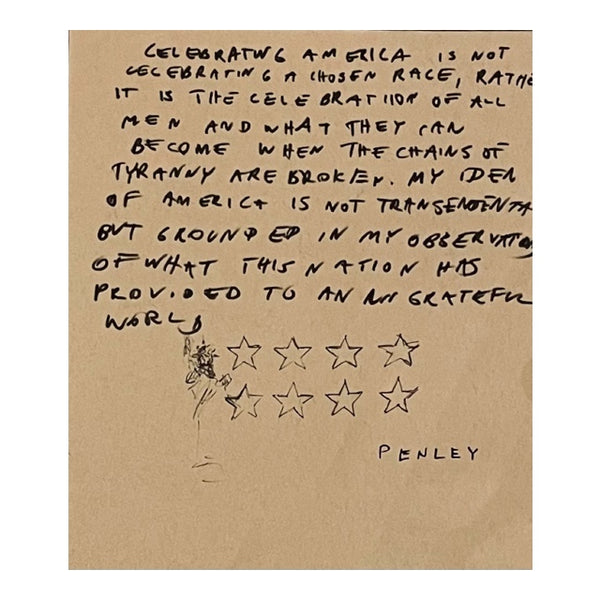 CELEBRATING AMERICA IS NOT
CELEBRATING A CHOSEN RACE, RATHE
IT IS THE CELEBRATION OF ALL
MEN AND WHAT THEY CAN
BECOME WHEN THE CHAINS OF
TYRANNY ARE BROKEN. MY IDEA
OF AMERICA IS NOT TRANSENDENTA
BUT GROUNDED IN MY OBSERVATION
OF WHAT THIS NATION HAS
PROVIDED TO AN UNGRATEFUL
WORLD
PENLEY